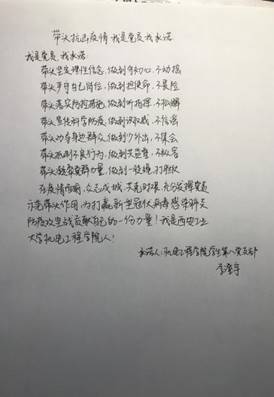 带头抗击疫情 我是党员 我承诺
我是党员 我承诺:
带头坚定理想信念, 做到守初心, 不动摇
带头严守自己岗位, 做到担使命, 不畏险
带头落实防控措施, 做到听指挥, 不松懈
带头宣传科学防疫, 做到识权威, 不信谣
带头劝导身边群众, 做到少外出, 不集会
带头抵制不良行为, 做到共监督,
带头凝聚党群力量, 做到一线, 打胜仗
在疫情面前, 众志成城、共克时艰, 充分发挥党员
示范带头作用, 为打赢新型冠状病毒感染肺炎
防疫攻坚战贡献自己的一份力量! 我是西安工业
大学机电工程学院人!
承诺人: 机电工程学院学生第八党支部
李